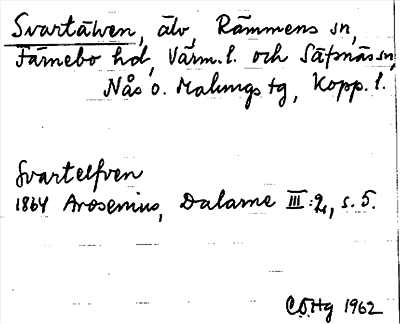 Svartälven, älv, Rämmens sn,
Färnebo hd, Värm. l. och Säfsnäs sn,
Nås o. Malungs tg, Kopp. l.
Svartelfven
1864 Arosenius, Dalarne III:2, s. 5.
C.Ö.Hg 1962